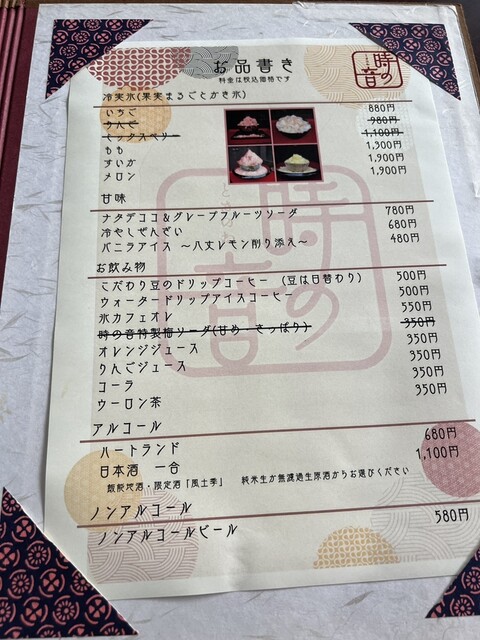 お品書き
料金は税込価格です
時の音
冷実氷(果実まるごとかき氷)
いちご 880円
りんご 980円
ミックスベリー 1,100円
もも 1,300円
すいか 1,900円
メロン 1,900円
甘味
ナタデココ&グレープフルーツソーダ 780円
冷やしぜんざい 680円
バニラアイス ～八丈レモン削り添え～ 480円
お飲み物
こだわり豆のドリップコーヒー (豆は日替わり) 500円
ウォータードリップアイスコーヒー 500円
氷カフェオレ 550円
時の音特製梅ソーダ(甘め・さっぱり) 350円
オレンジジュース 350円
りんごジュース 350円
コーラ 350円
ウーロン茶 350円
アルコール
ハートランド 680円
日本酒 一合 1,100円
飯能地酒・限定酒「風土季」 純米生か無濾過生原酒からお選びください
ノンアルコール
ノンアルコールビール 580円
時の音